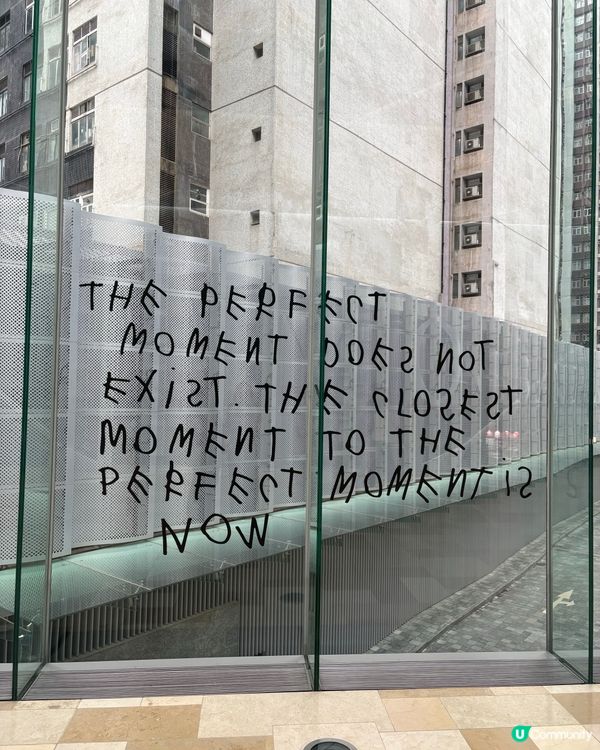 THE PERFECT
MOMENT DOES NOT
EXIST. THE CLOSEST
MOMENT TO THE
PERFECT MOMENT IS
NOW
U Community